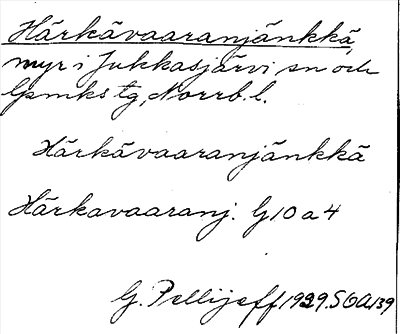 Härkävaaranjänkkä,
myr i Jukkasjärvi sn och
lpmks tg, Norrb. l.
Härkävaaranjänkkä
Härkavaaranj. G10 a 4
G. Pellijeff 1929. SOA 139